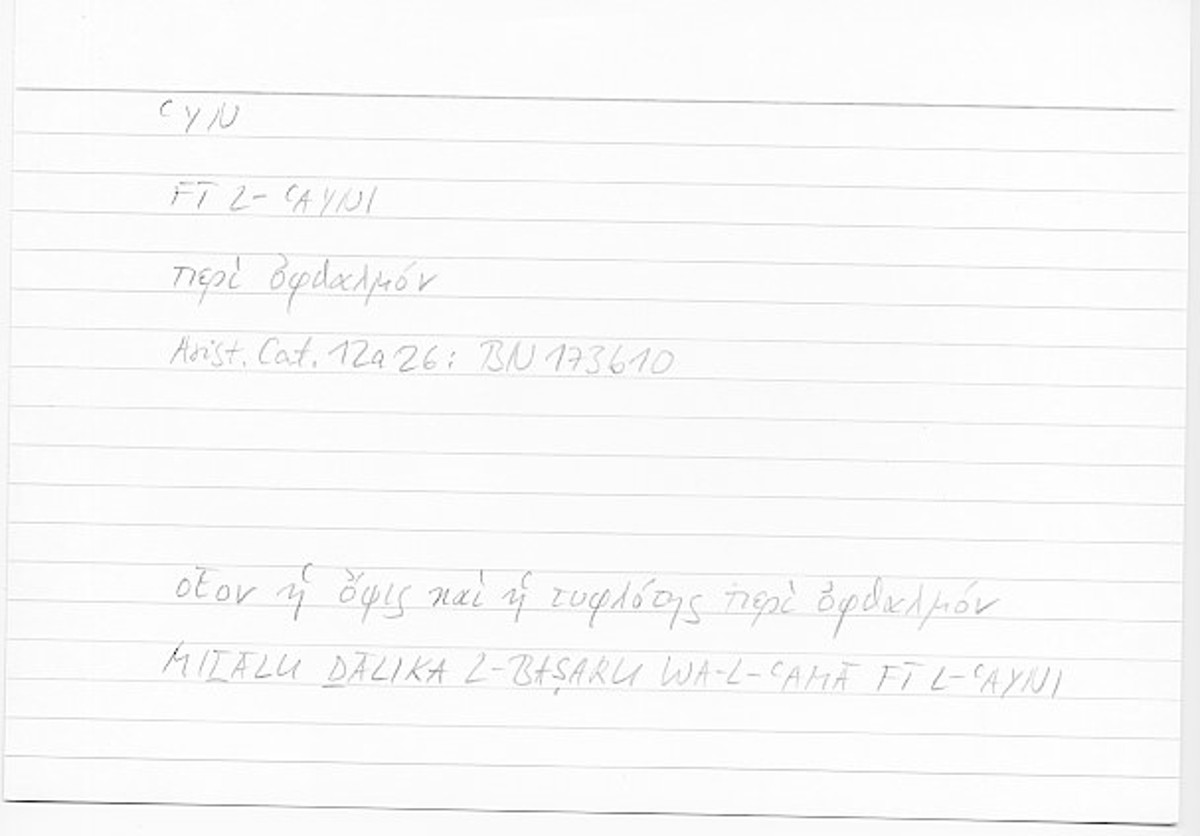 ʿYN
FĪ L-ʿAYNI
περὶ ὀφθαλμόν
Arist. Cat. 12a26: BN 173610
οἷον ἡ ὄψις καὶ ἡ τυφλότης περὶ ὀφθαλμόν
MIṮĀLU ḎĀLIKA L-BAṢARU WA-L-ʿAMĀ FĪ L-ʿAYNI